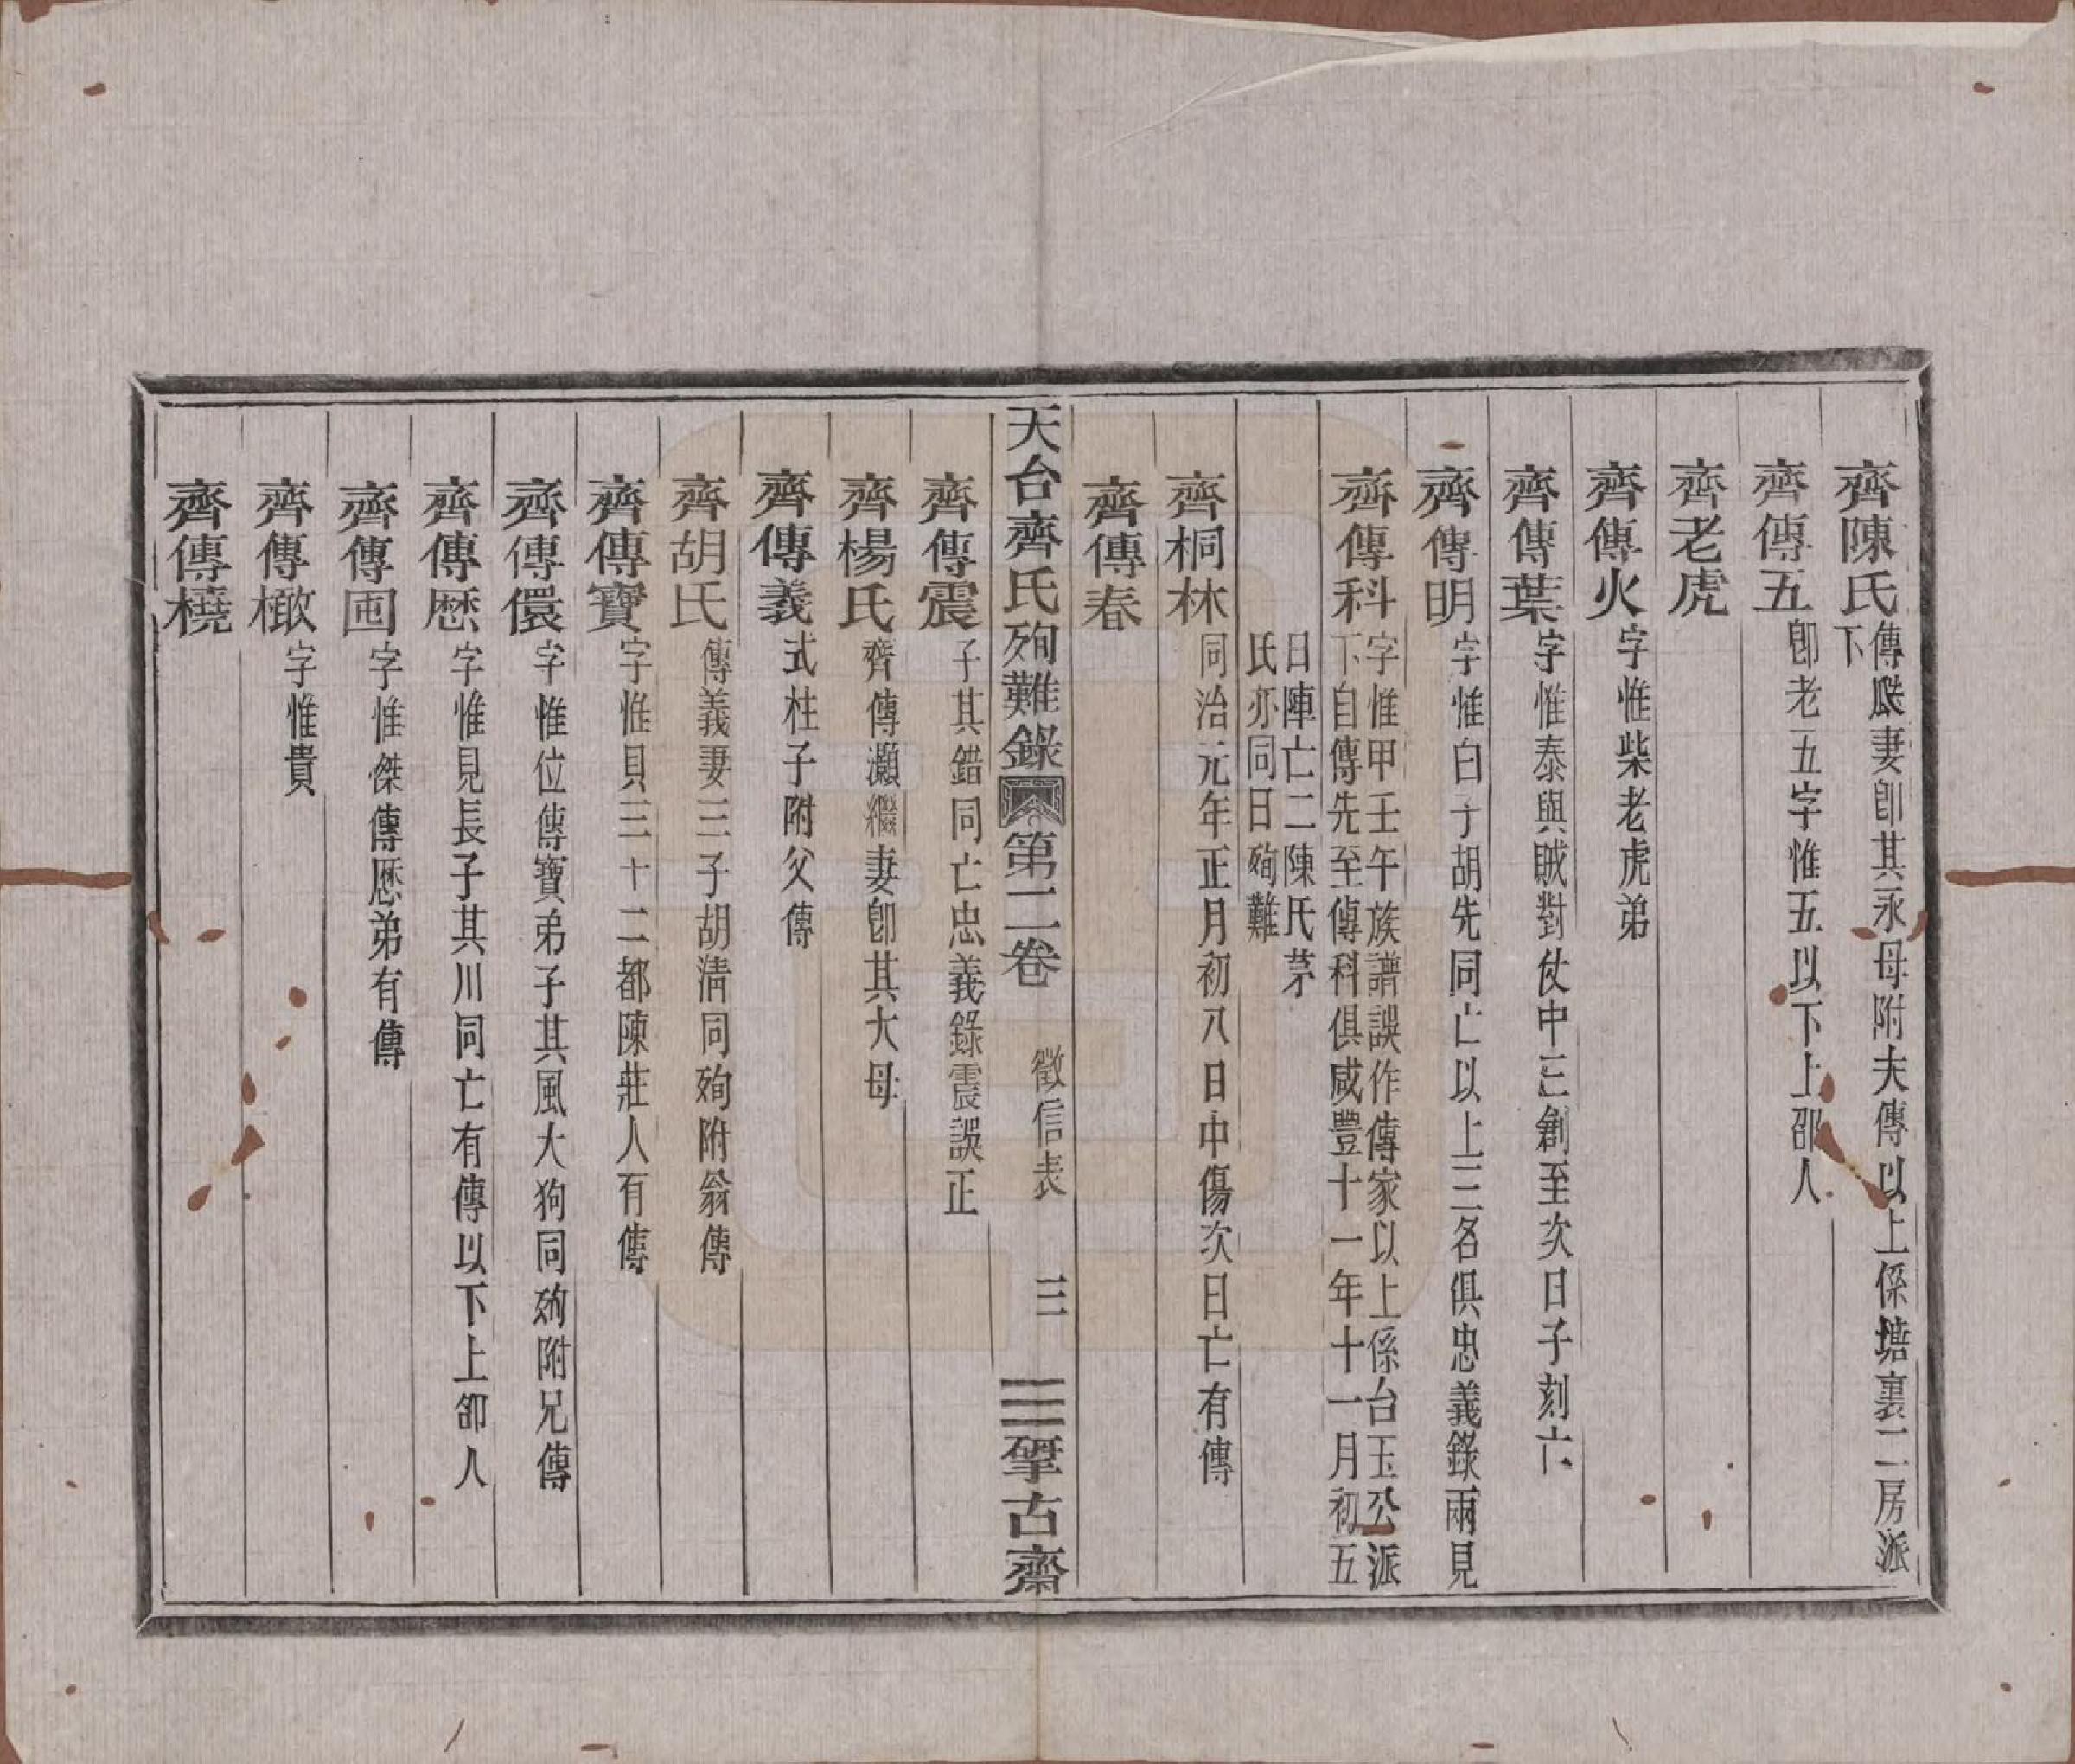 齊陳氏傳❲飈❳妻卽其永母附夫傳以上係塘裏二房派下
齊傳五卽老五字惟五以下上邵人
齊老虎
齊傳火字惟柴老虎弟
齊傳葉字惟泰與賊對仗中三創至次日子刻亡
齊傳明字惟白子胡先同亡以上三名俱忠義錄兩見
齊傳科字惟甲壬午族譜誤作傳家以上係台玉公派
下自傳先至傳科俱咸豐十一年十一月初五
日陣亡二陳氏茅
氏亦同日殉難
齊桐林同治元年正月初八日中傷次日亡有傳
齊傳春
天台齊氏殉難錄 第二卷 徵信表 三 揅古齋
齊傳震子其錯同亡忠義錄震誤正
齊楊氏齊傳灝繼妻卽其大母
齊傳義式柱子附父傳
齊胡氏傳義妻三子胡淸同殉附翁傳
齊傳寶字惟貝三十二都陳莊人有傳
齊傳儇字惟位傳寶弟子其風大狗同殉附兄傳
齊傳歷字惟見長子其川同亡有傳以下上卲人
齊傳囬字惟傑傳歷弟有傳
齊傳橄字惟貴
齊傳橈